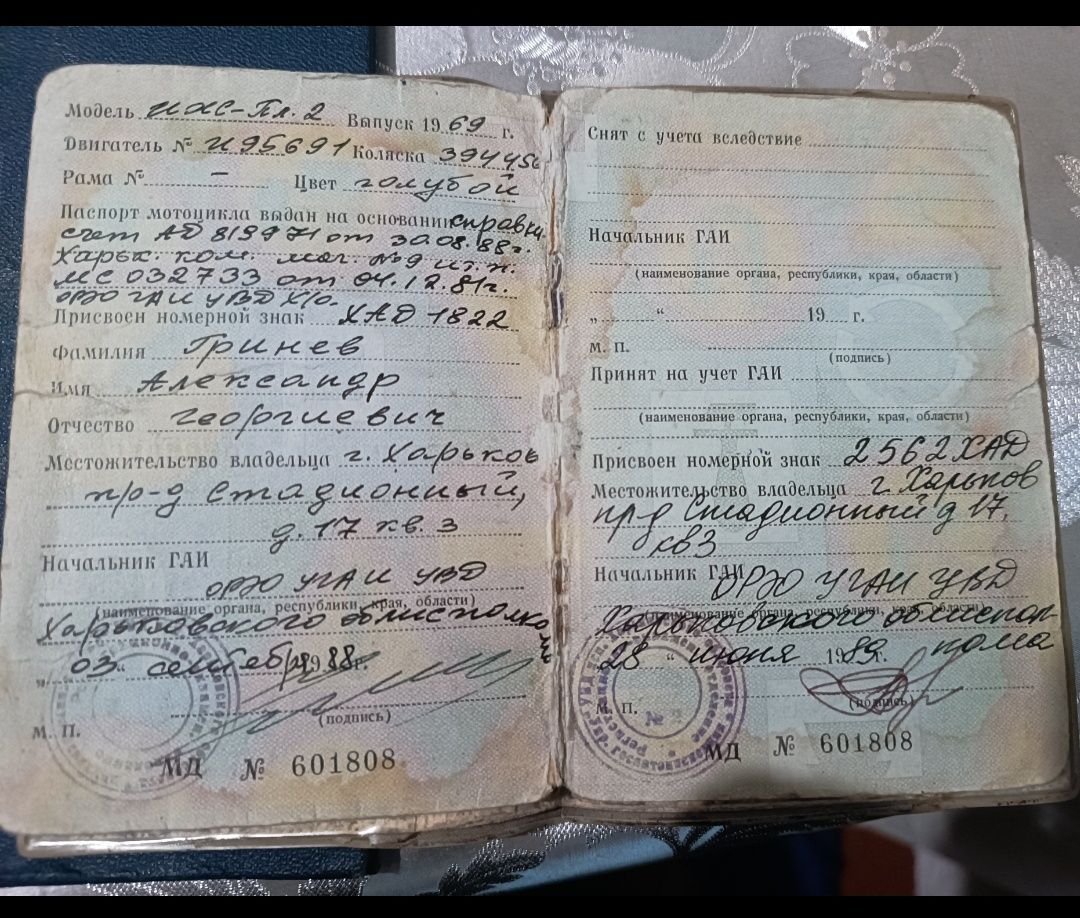 Модель ИЖС-Пл.2 Выпуск 1969 г.
Двигатель № И95691 Коляска 394456
Рама № – Цвет голубой
Паспорт мотоцикла выдан на основании справки
счет АД 819971 от 30.08.88г.
Харьк. ком. маг. №9 и т.п.
МС 032733 от 04.12.81г.
ОРЭО ГАИ УВД Х/о.
Присвоен номерной знак ХАД 1822
Фамилия Гринев
Имя Александр
Отчество Георгиевич
Местожительство владельца г. Харьков
пр-д Стадионный,
д. 17 кв. 3
Начальник ГАИ
ОРЭО УГАИ УВД
(наименование органа, республики, края, области)
Харьковского облисполкома
„03“ сентября 1988г.
(подпись)
М. П.
МД № 601808
Снят с учета вследствие
Начальник ГАИ
(наименование органа, республики, края, области)
„ “ 19 г.
М. П.
(подпись)
Принят на учет ГАИ
(наименование органа, республики, края, области)
Присвоен номерной знак 2562ХАД
Местожительство владельца г Харьков
пр-д Стадионный д 17,
кв3
Начальник ГАИ ОРЭО УГАИ УВД
(наименование органа, республики, края, области)
Харьковского облиспол
28 “ июня 1989г. кома
(подпись)
М. П.
№ 2
МД № 601808